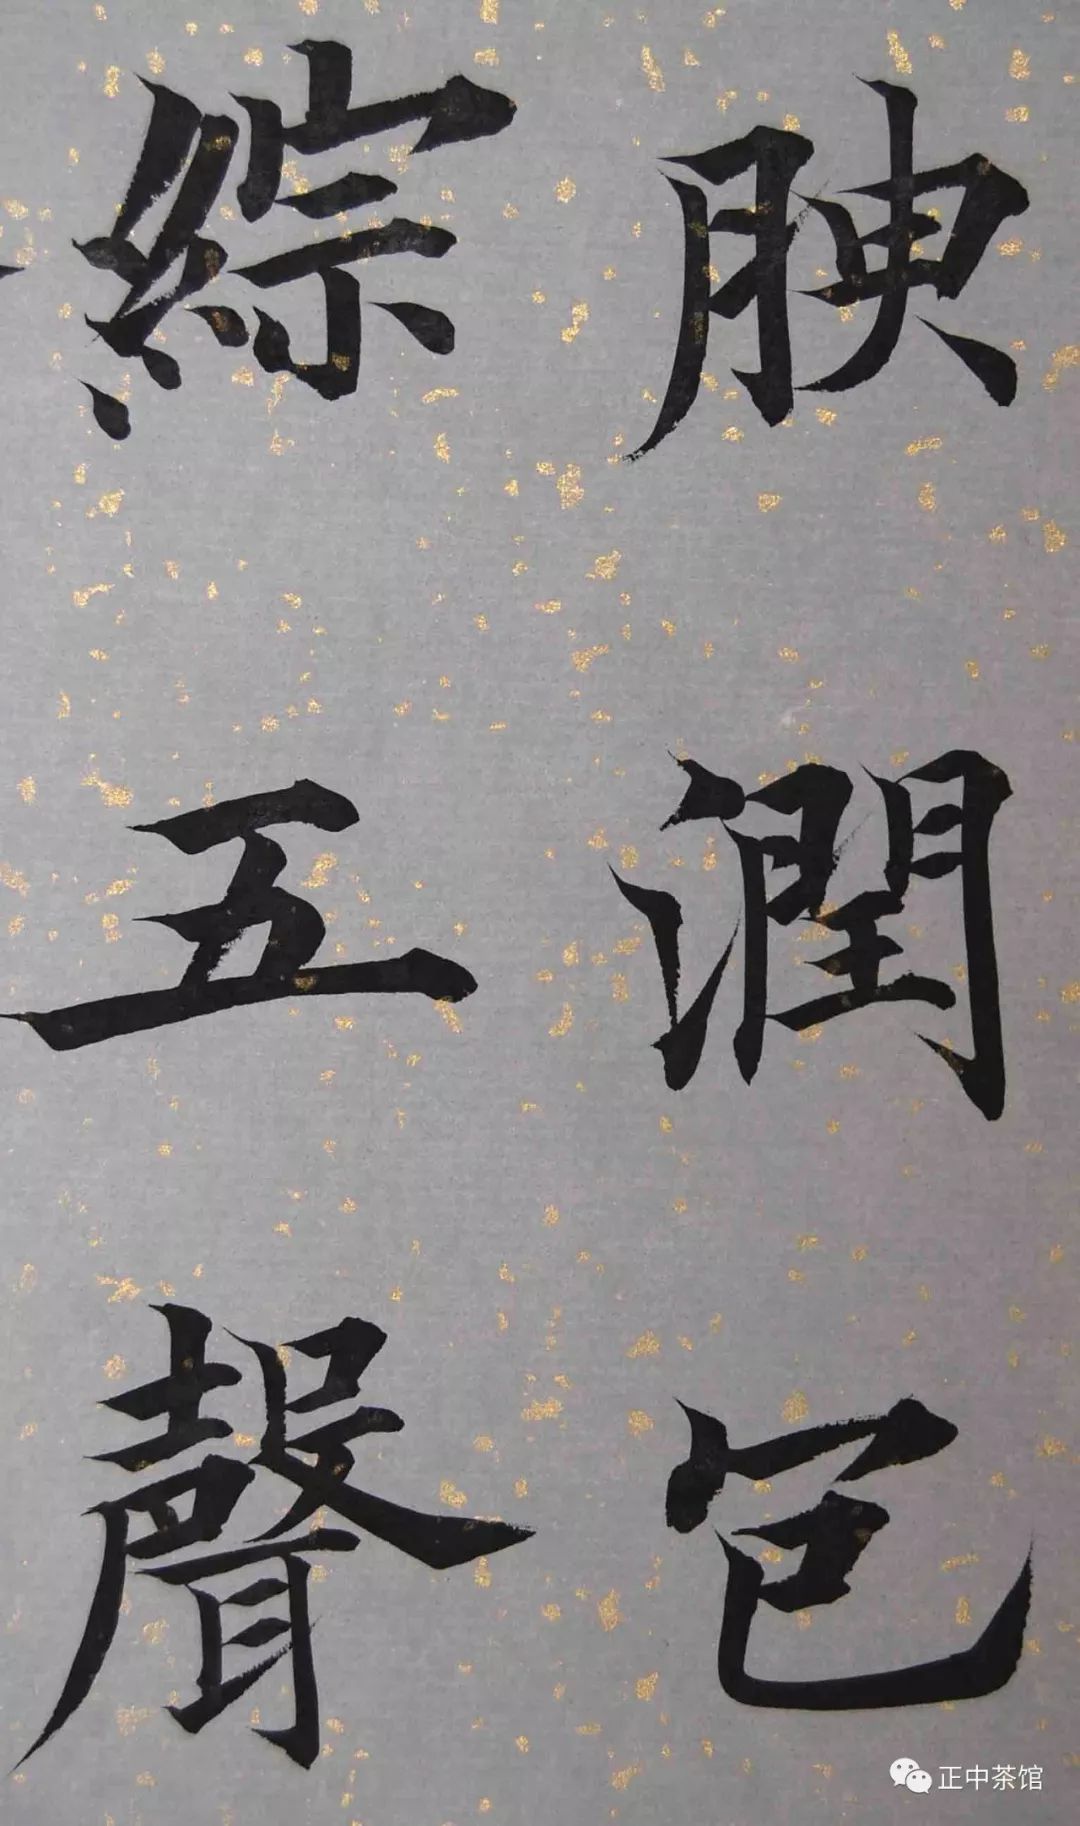 腴潤包
綜五聲
正中茶馆